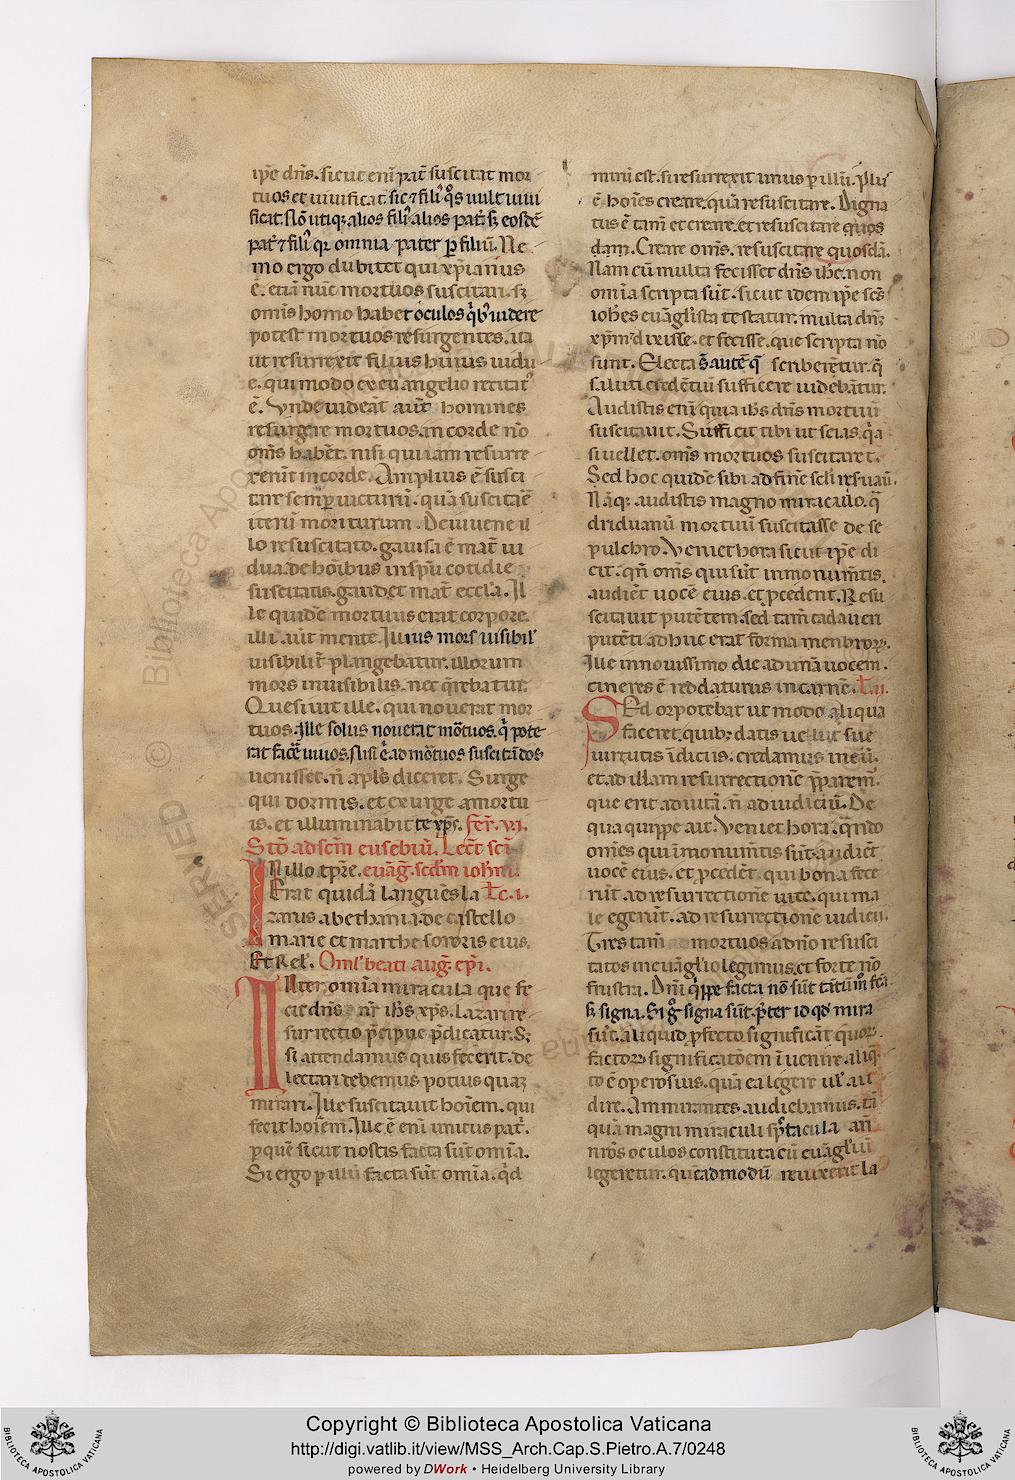 ip̄e dn̄s. sicut eni᷎ pat̄ suscitat mor
tuos et uiuificat. sic ⁊ fili᷒ q̊s uult uiui
ficat. Nō utiq; alios fili᷒ alios pat̄. sꝫ eosdē
pat̄ ⁊ fili᷒ qr omnia pater ꝑ filiū. Ne
mo ergo dubitet qui xp̄ianus
ē. etiā nūc mortuos suscitari. sꝫ
om̄is homo habet oculos qͥb᷒ uidere
potest mortuos resurgentes. ita
ut resurrexit filius huius uidu
e. qui modo ex euangelio recitat᷒
ē. Vnde uideāt aūt homines
resurgere mortuos. in corde nō
om̄s habēt. nisi qui iam resurre
xerūt in corde. Amplius ē susci
tare semꝑ uicturū. quā suscitare
iterū moriturum. De iuuene il
lo resuscitato. gauisa ē mat̄ ui
dua. de hoībus in sp̄u cotidie
suscitatis. gaudet mat̄ eccl̄a. Il
le quidē mortuus erat corpore.
illi aūt mente. Illius mors uisibil᷒
uisibilit̄ plangebatur. illorum
mors inuisibilis. nec q̄rebatur.
Quesiuit ille. qui nouerat mor
tuos. Ille solus nouerat mōtuos. qͥ pote
rat facē uiuos. Nisi ē. ad mōtuos suscitādos
uenisset. n̄ apl̄s diceret. Surge
qui dormis. et exurge a mortu
is. et illuminabit te xp̄s. fer̄. vi.
Stō ad sc̄m eusebiū. Lect̄ sc̄i
IN illo tp̄re. euāg̅. sc̄dm ioh̄m.
Erat quidā languēs la Łc. i.
zarus. a bethania. de castello
marie et marthe sororis eius.
Et rel̄. Oml̄ beati aug̅. ep̄i.
INter om̄ia miracula que fe
cit dn̄s nr̄ ih̄s xp̄s. lazari re
surrectio p̄cipue p̄dicatur. Sꝫ
si attendamus quis fecerit. de
lectari debemus potius quaꝫ
mirari. Ille suscitauit hoīem. qui
fecit hoīem. Ille ē eni᷎ unicus pat̄.
ꝑ quē sicut nostis facta sūt om̄ia.
Si ergo ꝑ illū facta sūt om̄ia. qͥd
mirū est. si resurrexit unus ꝑ illū. Pl᷒
ē hoīes creare. quā resuscitare. Digna
tus ē tam̄ et creare. et resuscitare quos
dam. Creare om̄s. resuscitare quosdā.
Nam cū multa fecisset dn̄s ih̄c. non
om̄ia scripta sūt. sicut idem ip̄e sc̄s
ioh̄es euāgl̄ista testatur. multa dn̄ꝫ
xp̄m ⁊ dixisse. et fecisse. que scripta nō
sunt. Electa s̄ autē q̄ scriberētur. q̄
saluti credētiū sufficere uidebātur.
Audistis eni᷎ quia ih̄s dn̄s mortuū
suscitauit. Sufficit tibi ut scias. qͥa
si uellet. om̄s mortuos suscitaret.
Sed hoc quidē sibi ad finē scl̄i resuaū.
Nāq; audistis magno miraculo. q̄
driduanū mortuū suscitasse de se
pulchro. Veniet hora sicut ip̄e di
cit. qn̄ om̄s qui sūt in monumētis.
audiēt uocē eius. et ꝓcedent. Resu
scitauit putētem. sed tam̄ cadaueri
putēti adhuc erat forma menbroꝝ.
Ille in nouissimo die ad unā uocem.
cineres ē redditurus in carnē. Ł. ii.
SEd oportebat ut modo aliqua
faceret. quibꝫ datis uelut sue
uirtutis īdiciis. credamus in eū.
et ad illam resurrectionē p̄parem᷒.
que erit ad uitā. n̄ ad iudiciū. De
qua quippe ait. Veniet hora. qn̄do
om̄es qui ī monumētis sūt. audiēt
uocē eius. et ꝓcedēt. qui bona fece
rūt. ad resurrectionē uite. qui ma
le egerūt. ad resurrectionē iudicii.
Tres tam̄ mortuos a dn̄o resusci
tatos in euāgl̄io legimus. et forte nō
frustra. Dn̄i qͥppe facta nō sūt tātū m̊ fc̄a.
sꝫ signa. Si gͦ signa sūt. p̄ter id qd̄ mira
sūt. aliquid ꝓfecto significāt. quoꝝ
factoꝝ significatōem īuenire. aliq̄
to ē operosius. quā ea legere ul᷒ au
dire. Ammirantes audiebamus. tā
quā magni miraculi spectacula an̄
nr̄os oculos constituta cū euāgl̄iū
legeretur. quēadmodū reuixerit la
Copyright © Biblioteca Apostolica Vaticana
http://digi.vatlib.it/view/MSS_Arch.Cap.S.Pietro.A.7/0248
powered by DWork • Heidelberg University Library